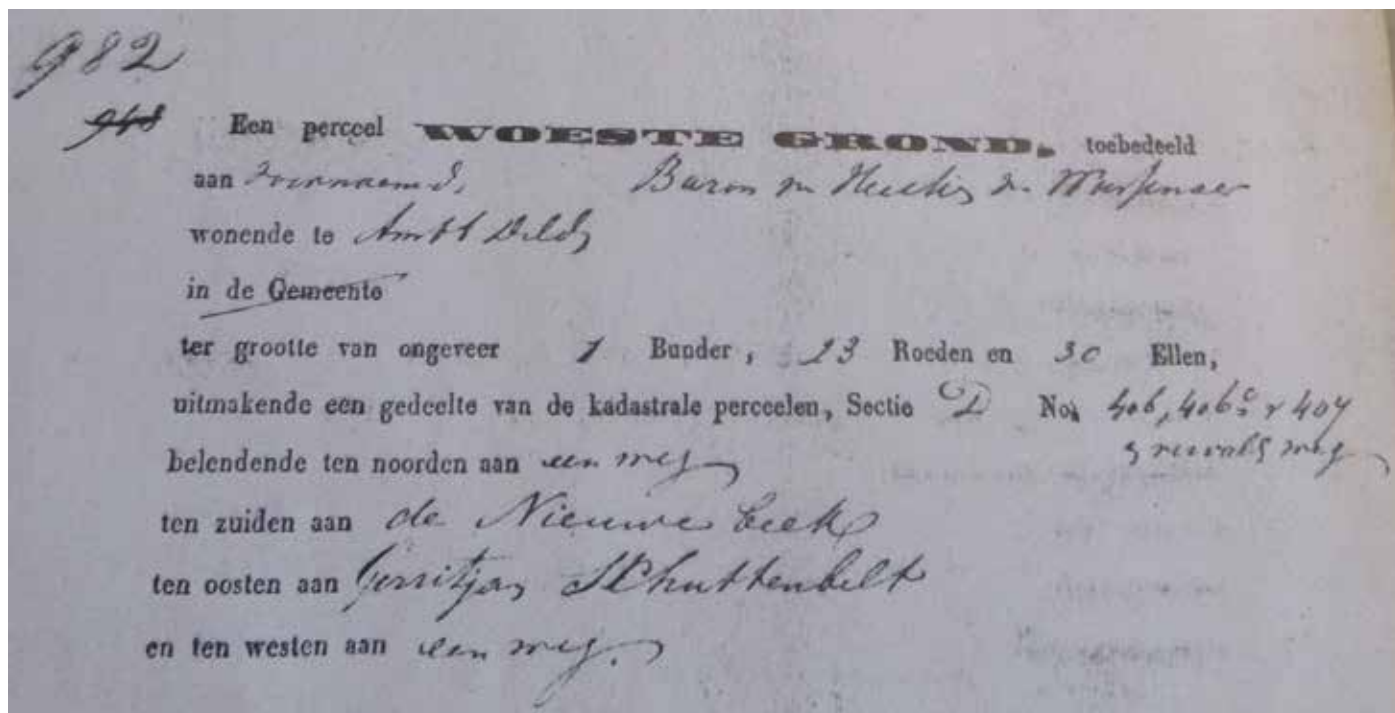 982
948 Een perceel WOESTE GROND, toebedeeld
aan voornoemd, Baron van Heeckeren van Wassenaer
wonende te Ambt Delden
in de Gemeente
ter grootte van ongeveer 1 Bunder, 23 Roeden en 30 Ellen,
uitmakende een gedeelte van de kadastrale perceelen, Sectie D No. 406, 406
weg
belendende ten noorden aan een weg
ten zuiden aan de Nieuwe beek
ten oosten aan Gerritjan Schuttenbelt
en ten westen aan een weg.